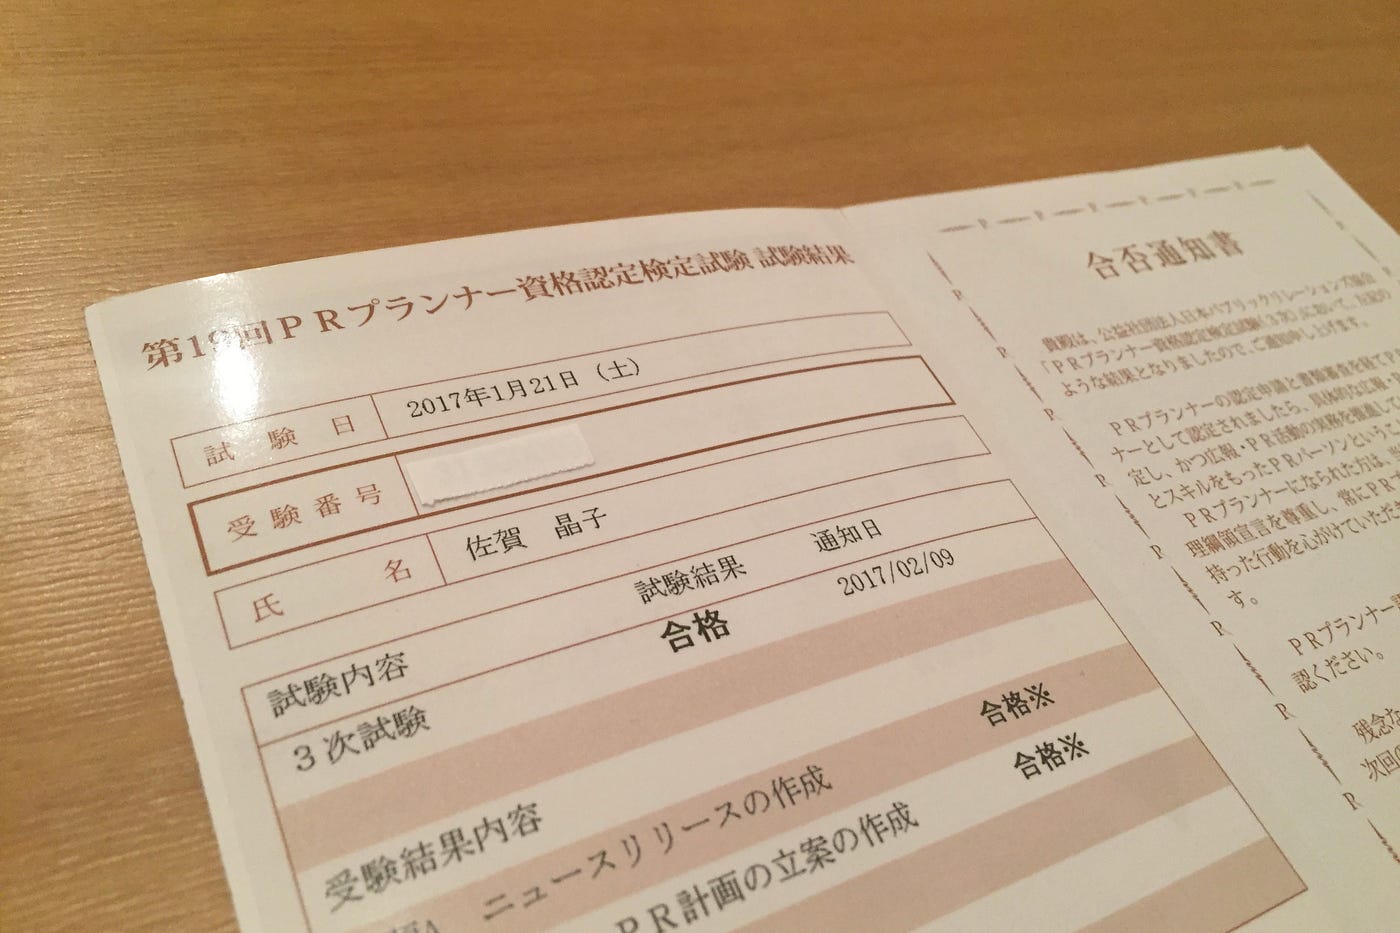 第19回ＰＲプランナー資格認定検定試験 試験結果
試験日 2017年1月21日（土）
受験番号
氏名 佐賀 晶子
試験内容 試験結果 通知日
３次試験 合格 2017/02/09
受験結果内容
ニュースリリースの作成 合格※
ＰＲ計画の立案の作成 合格※
合否通知書
貴殿は、公益社団法人日本パブリックリレーションズ協会
「ＰＲプランナー資格認定検定試験(３次)」において、左記の
ような結果となりましたので、ご通知申し上げます。
ＰＲプランナーの認定申請と書類審査を経てＰ
ナーとして認定されましたら、具体的な広報・
定し、かつ広報・ＰＲ活動の実務を推進し
とスキルをもったＰＲパーソンという
ＰＲプランナーになられた方は、
理綱領宣言を尊重し、常にＰＲプ
持った行動を心がけていただき
す。
ＰＲプランナー認
認ください。
残念な
次回の